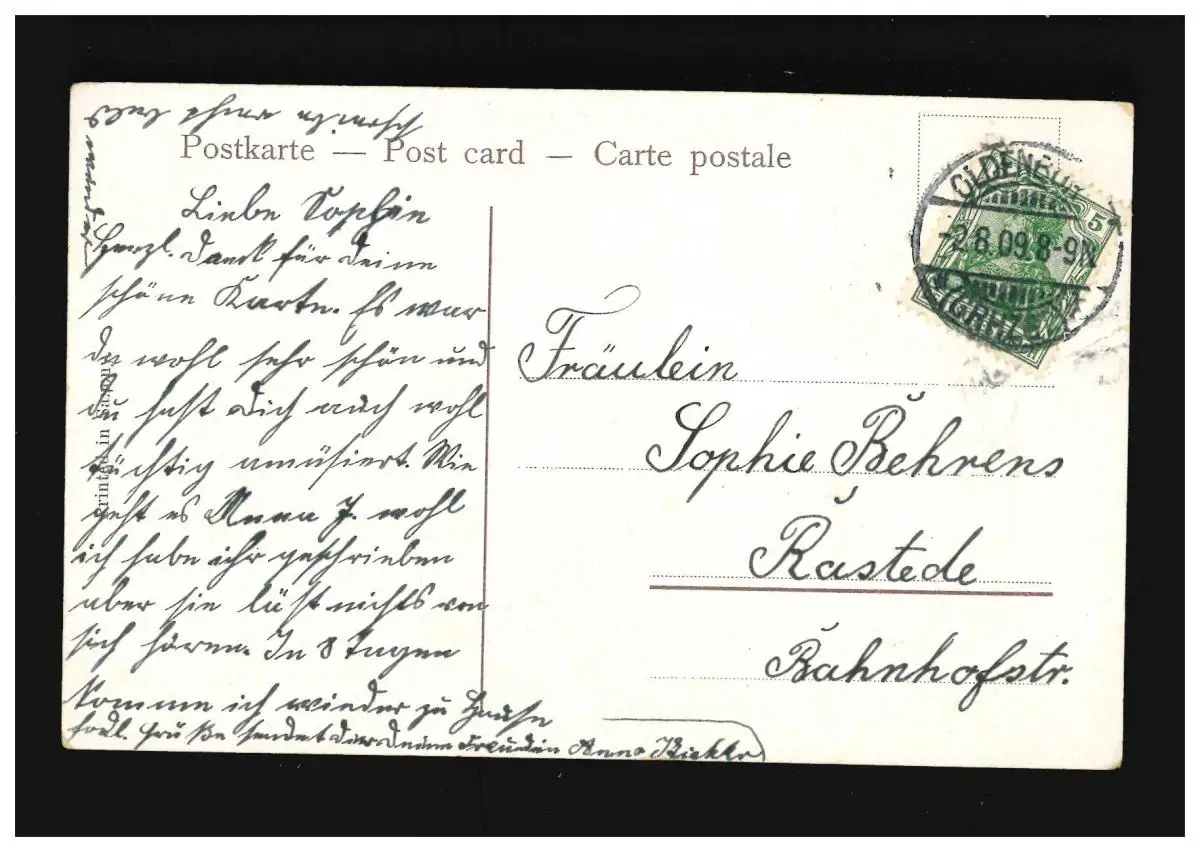 Postkarte — Post card — Carte postale
Liebe Sophie
Herzl. Dank für Deine
schöne Karte. Es war
da wohl sehr schön und
Du hast Dich auch wohl
tüchtig amüsiert. Wie
geht es Anna J. wohl
ich habe ihr geschrieben
aber sie läßt nichts von
sich hören. In 8 Tagen
komme ich wieder zu Hause
Grüße sendet Dir Deine Freundin Anna
Printed in
OLDENBURG
-2.8.09.8-9N
(GRHZ.)
5
Fräulein
Sophie Behrens
Rastede
Bahnhofstr.